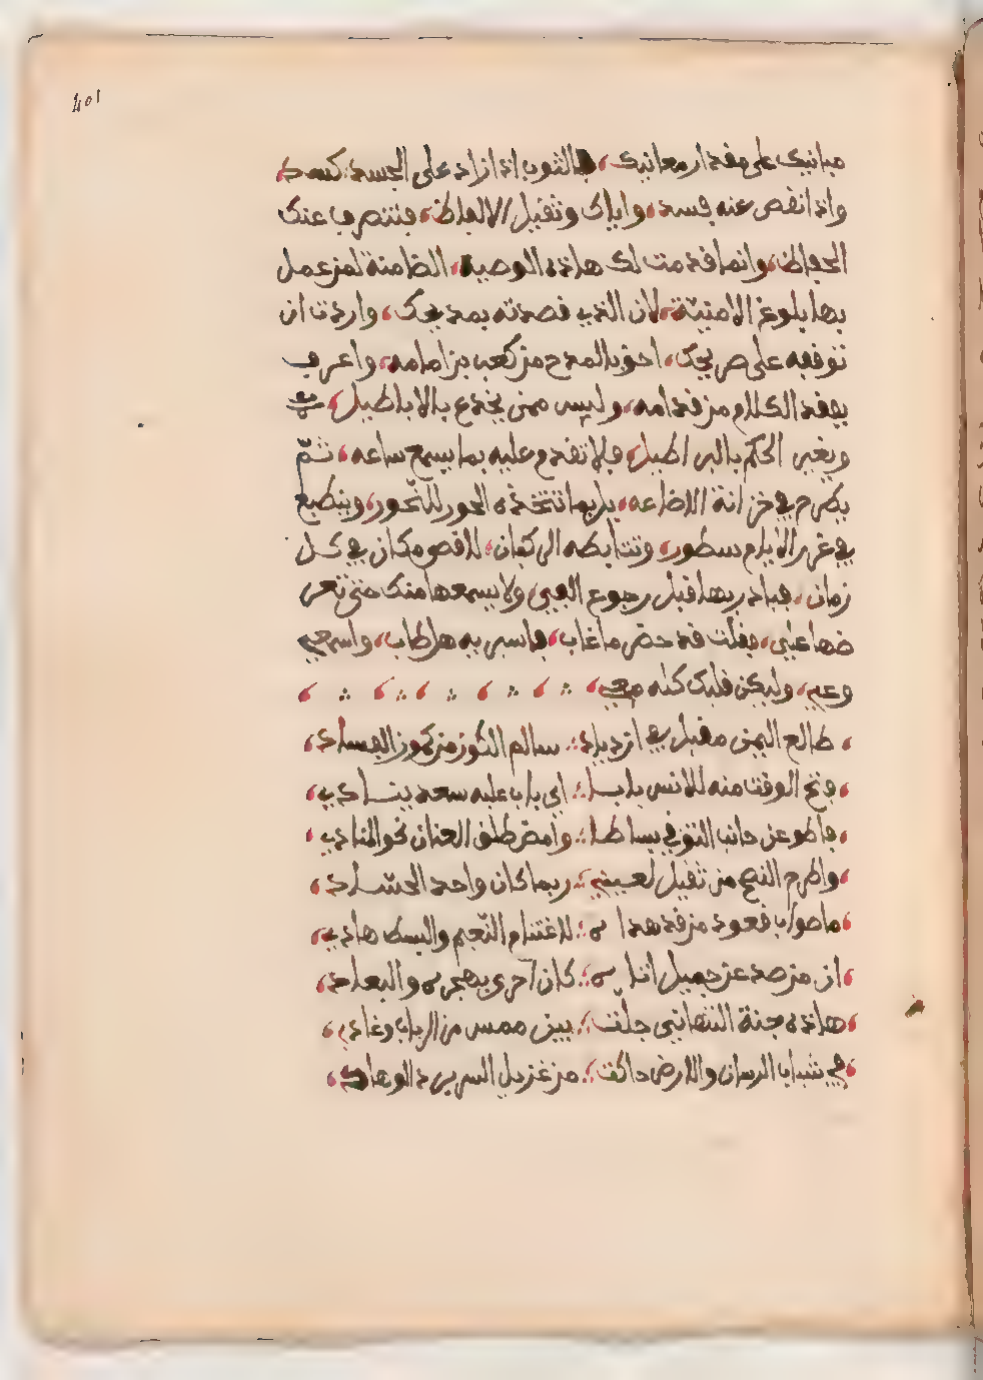 401
مبانيك على مقدار معانيك، فالثوب اذا زاد على الجسد كسد،
واذا نقص عنه فسد، واياك وثقيل الالفاظ، فتنصرف عنك
الحفاظ، وانما قدمت لك هاذه الوصية، الضامنة لمن عمل
بها بلوغ الامنيّة، لان الذي قصدته بمديحك، واردت ان
توقفه على صريحك، احق بالمدح من كعب بن امامه، واعرف
بنقد الكلام من قدامه، وليس ممن يخدع بالاباطيل،
ويغير الحكم بالبراطيل، فلا تقدم عليه بما يسمع ساعه، ثمّ
يطرح في خزانة الاضاعه، بل بما تتخذه الحور للنّحور، وينطبع
في غرر الايام سطور، وتتأبطه الركبان، لاقصى مكان في كل
زمان، فبادر بها قبل رجوع الفيء، ولا يسمعها منك حتى تعر
ضها علي، فقلت قد حضر ما غاب، فاسبر به هل طاب، واسمع
وعي، وليكن قلبك كله معي،
طالع اليمن مقبل في ازدياد؛ سالم الكون من كمون الفساد،
فتح الوقت منه للانس بابا؛ اي باب عليه سعد ينادي،
فاطو عن جانب التوقي بساطا؛ وامض طلق العنان نحو المنادي،
واطرح النصح من ثقيل لعيني؛ ربما كان واحد الحسّاد،
ما صواب قعود من قد هداه؛ لاغتنام النّعيم والبسط هادي،
ان من صد عن جميل اناس؛ كان احرى بهجره والبعاد،
هاذه جنة التهاني جلّت؛ بين ممس من الرباب وغادي،
في شباب الزمان والارض حاكت؛ من غزيل السرير الوهاد،